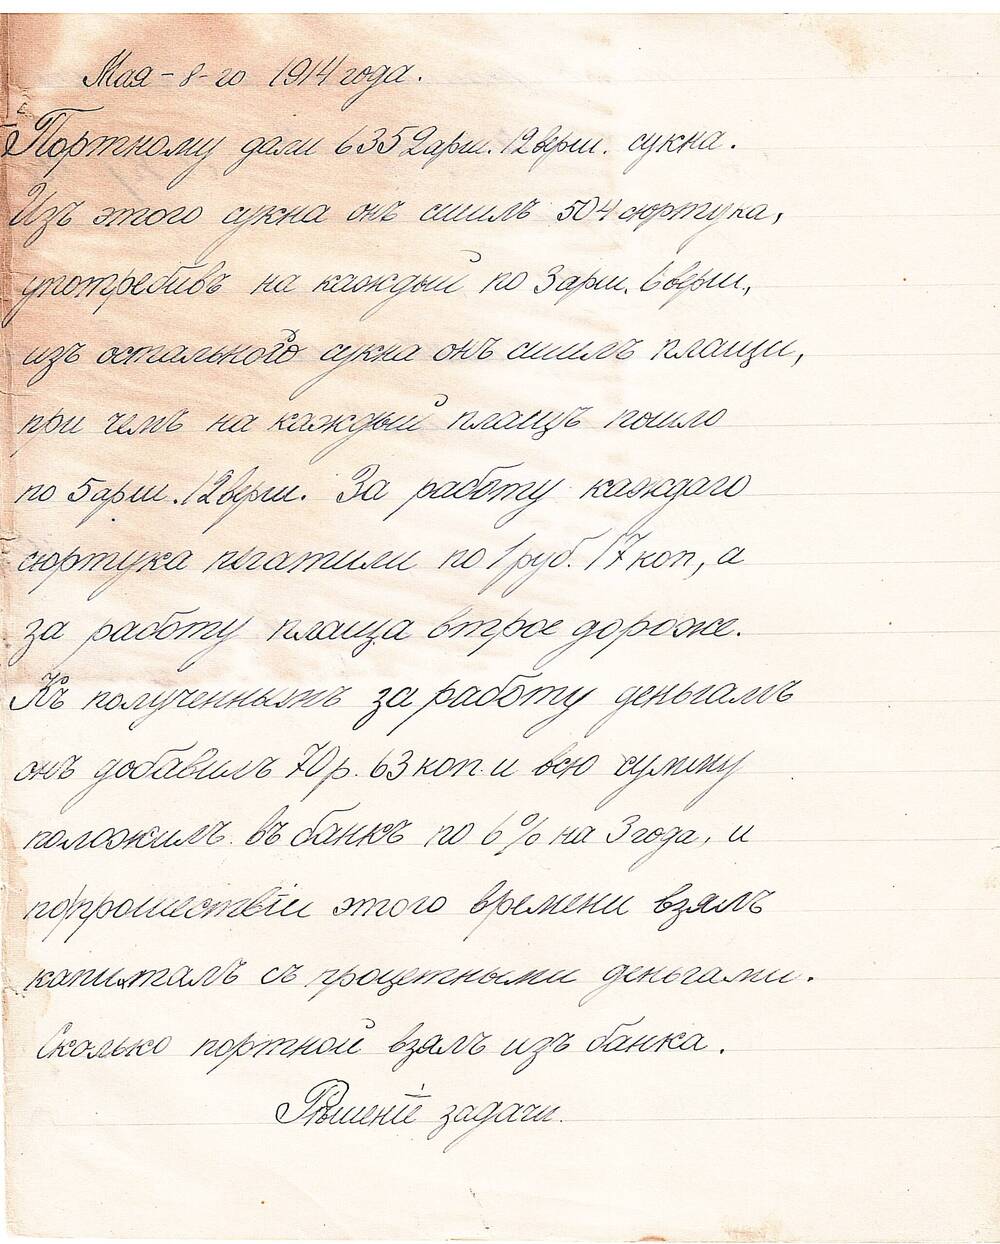 Мая - 8 - го 1914 года.
Портному дали 6352 арш. 12 верш. сукна.
Изъ этого сукна онъ сшилъ 504 сюртука,
употребивъ на каждый по 3 арш. 6 верш.,
изъ остального сукна онъ сшилъ плащи,
при чемъ на каждый плащъ пошло
по 5 арш. 12 верш. За работу каждаго
сюртука платили по 1 руб. 17 коп, а
за работу плаща втрое дороже.
Къ полученнымъ за работу деньгамъ
онъ добавилъ 70 р. 63 коп. и всю сумму
положилъ въ банкъ по 6% на 3 года, и
по прошествіи этого времени взялъ
капиталъ съ процетными деньгами.
Сколько портной взялъ изъ банка.
Рѣшеніе задачи.